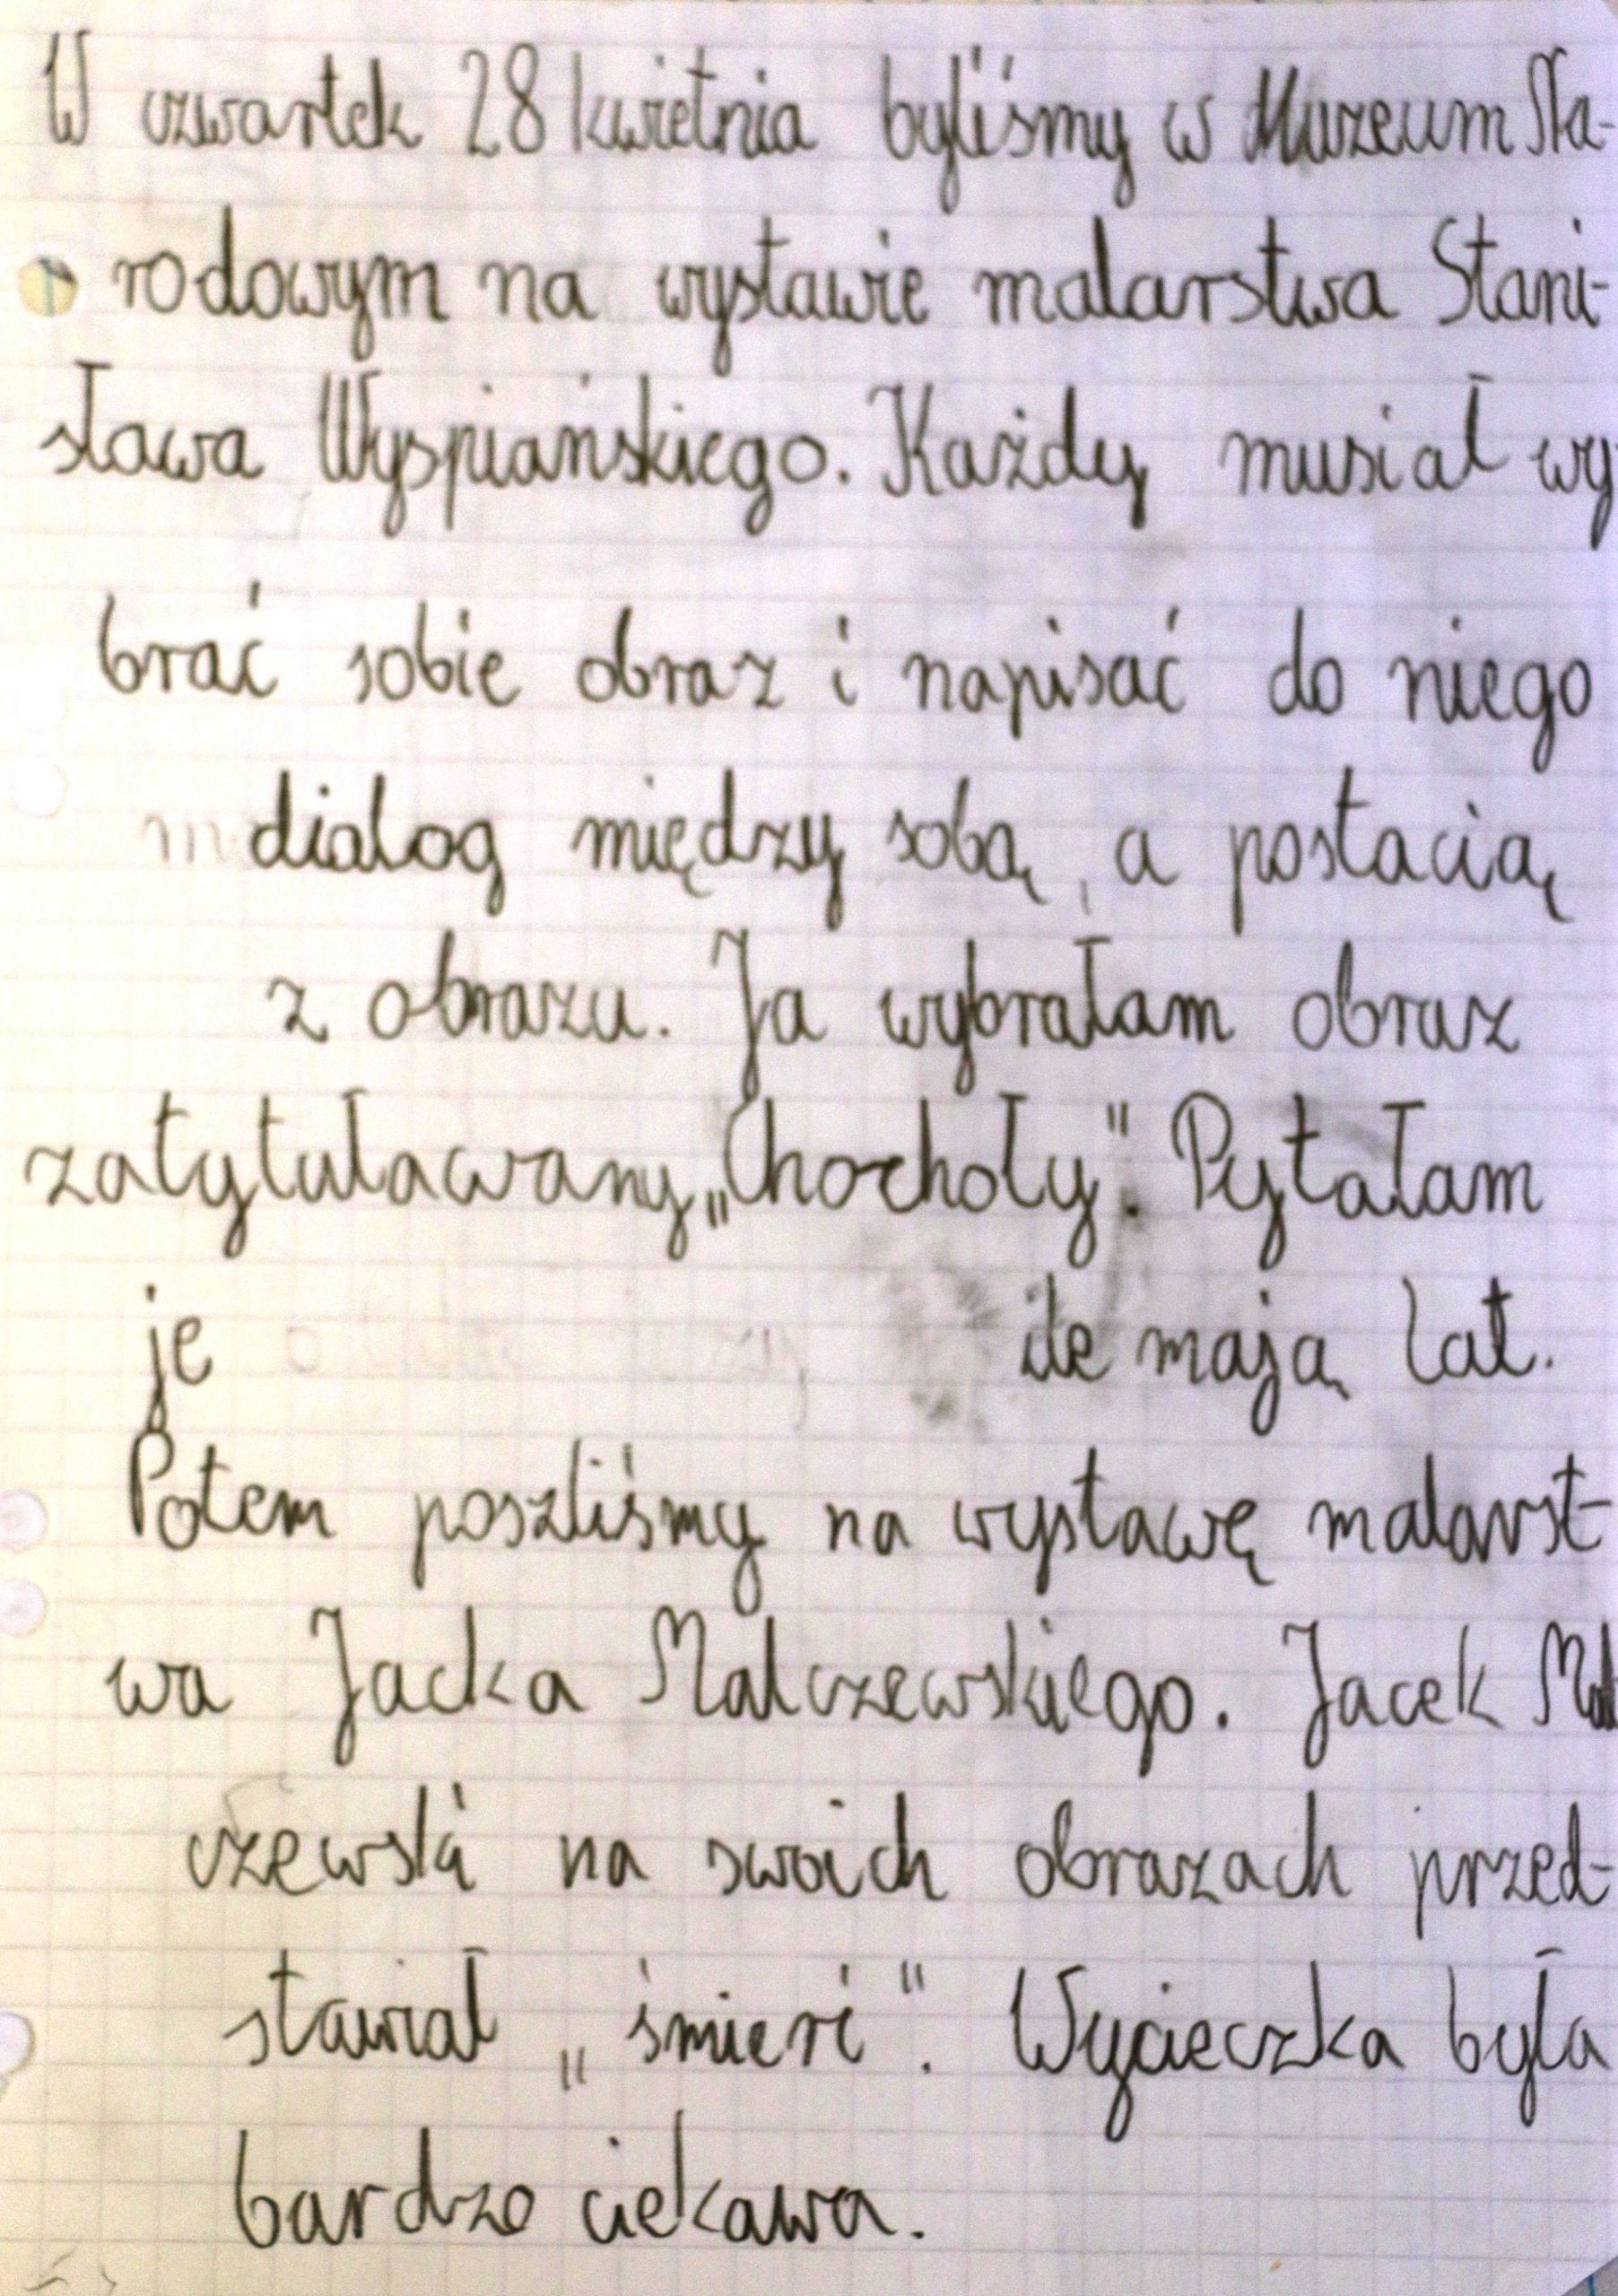 W czwartek 28 kwietnia byliśmy w Muzeum Na-
rodowym na wystawie malarstwa Stani-
sława Wyspiańskiego. Każdy musiał wy
brać sobie obraz i napisać do niego
dialog między sobą, a postacią
z obrazu. Ja wybrałam obraz
zatytuławany „Chochoły". Pytałam
je ile mają lat.
Potem poszliśmy na wystawę malarst-
wa Jacka Malczewskiego. Jacek Mal
czewski na swoich obrazach przed-
stawiał „śmierć". Wycieczka była
bardzo ciekawa.